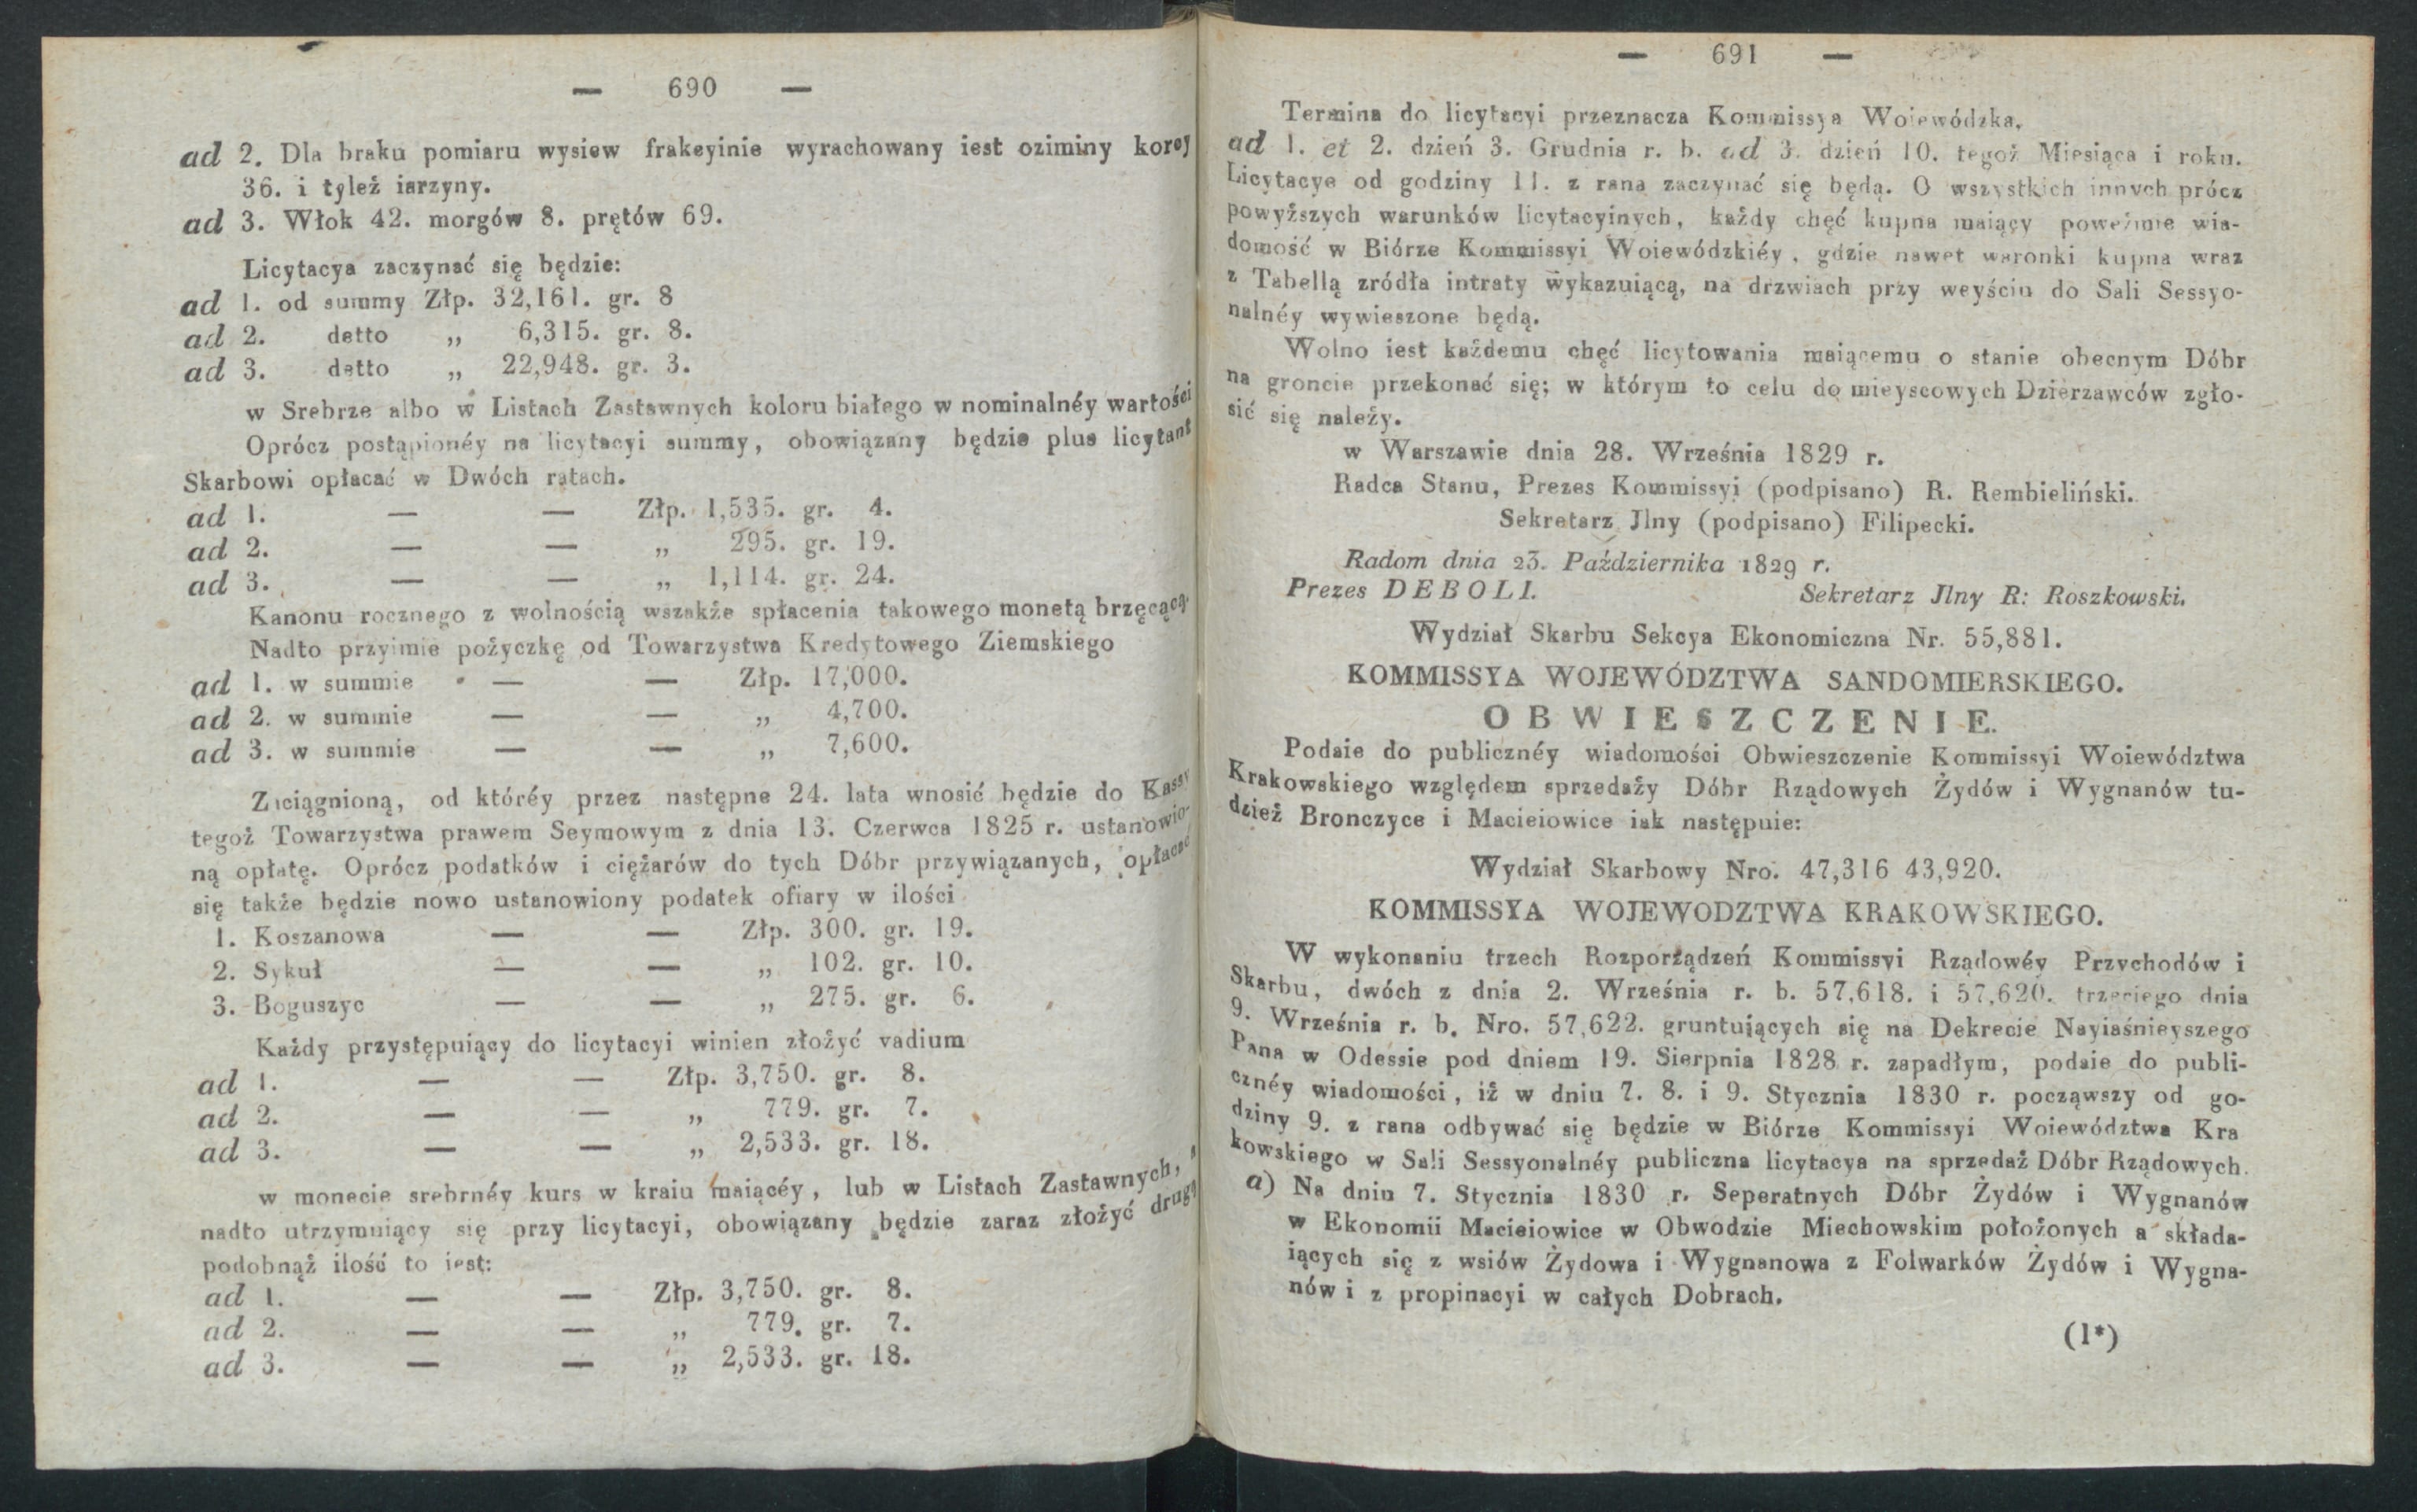 — 690 —
ad 2. Dla braku pomiaru wysiew frakcyinie wyrachowany iest oziminy korcy
36. i tyleż iarzyny.
ad 3. Włok 42. morgów 8. prętów 69.
Licytacya zaczynać się będzie:
ad 1. od summy Złp. 32,161. gr. 8
ad 2. detto „ 6,315. gr. 8.
ad 3. detto „ 22,948. gr. 3.
w Srebrze albo w Listach Zastawnych koloru białego w nominalnéy wartości
Oprócz postąpionéy na licytacyi summy, obowiązany będzie plus licytant
Skarbowi opłacać w Dwóch ratach.
ad 1. — — Złp. 1,535. gr. 4.
ad 2. — — „ 295. gr. 19.
ad 3. — — „ 1,114. gr. 24.
Kanonu rocznego z wolnością wszakże spłacenia takowego monetą brzęcącą.
Nadto przyimie pożyczkę od Towarzystwa Kredytowego Ziemskiego
ad 1. w summie — — Złp. 17,000.
ad 2. w summie — — „ 4,700.
ad 3. w summie — — „ 7,600.
Zaciągnioną, od któréy przez następne 24. lata wnosić będzie do Kassy
tegoż Towarzystwa prawem Seymowym z dnia 13. Czerwca 1825 r. ustanowio-
ną opłatę. Oprócz podatków i ciężarów do tych Dóbr przywiązanych, opłacać
się także będzie nowo ustanowiony podatek ofiary w ilości
1. Koszanowa — — Złp. 300. gr. 19.
2. Sykuł — — „ 102. gr. 10.
3. Boguszyc — — „ 275. gr. 6.
Każdy przystępuiący do licytacyi winien złożyć vadium
ad 1. — — Złp. 3,750. gr. 8.
ad 2. — — „ 779. gr. 7.
ad 3. — — „ 2,533. gr. 18.
w monecie srebrnéy kurs w kraiu maiącéy, lub w Listach Zastawnych, a
nadto utrzymuiący się przy licytacyi, obowiązany będzie zaraz złożyć drugą
podobnąż ilość to iest:
ad 1. — — Złp. 3,750. gr. 8.
ad 2. — — „ 779. gr. 7.
ad 3. — — „ 2,533. gr. 18.
— 691 —
Termina do licytacyi przeznacza Kommissya Woiewódzka.
ad 1. et 2. dzień 3. Grudnia r. b. ad 3. dzień 10. tegoż Miesiąca i roku.
Licytacye od godziny 11. z rana zaczynać się będą. O wszystkich innych prócz
powyższych warunków licytacyinych, każdy chęć kupna maiący poweźmie wia-
domość w Biórze Kommissyi Woiewódzkiéy, gdzie nawet waronki kupna wraz
z Tabellą zródła intraty wykazuiącą, na drzwiach przy weyściu do Sali Sessyo-
nalnéy wywieszone będą.
Wolno iest każdemu chęć licytowania maiącemu o stanie obecnym Dóbr
na groncie przekonać się; w którym to celu do mieyscowych Dzierzawców zgło-
sić się należy.
w Warszawie dnia 28. Września 1829 r.
Radca Stanu, Prezes Kommissyi (podpisano) R. Rembieliński.
Sekretarz Jlny (podpisano) Filipecki.
Radom dnia 23. Października 1829 r.
Prezes DEBOLI. Sekretarz Jlny R: Roszkowski.
Wydział Skarbu Sekcya Ekonomiczna Nr. 55,881.
KOMMISSYA WOJEWÓDZTWA SANDOMIERSKIEGO.
OBWIESZCZENIE.
Podaie do publicznéy wiadomości Obwieszczenie Kommissyi Woiewództwa
Krakowskiego względem sprzedaży Dóbr Rządowych Żydów i Wygnanów tu-
dzież Bronczyce i Macieiowice iak następuie:
Wydział Skarbowy Nro. 47,316 43,920.
KOMMISSYA WOJEWODZTWA KRAKOWSKIEGO.
W wykonaniu trzech Rozporządzeń Kommissyi Rządowéy Przychodów i
Skarbu, dwóch z dnia 2. Września r. b. 57,618. i 57,620. trzeciego dnia
9. Września r. b. Nro. 57,622. gruntuiących się na Dekrecie Nayiaśnieyszego
Pana w Odessie pod dniem 19. Sierpnia 1828 r. zapadłym, podaie do publi-
cznéy wiadomości, iż w dniu 7. 8. i 9. Stycznia 1830 r. począwszy od go-
dziny 9. z rana odbywać się będzie w Biórze Kommissyi Woiewództwa Kra
kowskiego w Sali Sessyonalnéy publiczna licytacya na sprzedaż Dóbr Rządowych.
a) Na dniu 7. Stycznia 1830 r. Seperatnych Dóbr Żydów i Wygnanów
w Ekonomii Macieiowice w Obwodzie Miechowskim położonych a składa-
iących się z wsiów Żydowa i Wygnanowa z Folwarków Żydów i Wygna-
nów i z propinacyi w całych Dobrach.
(1*)